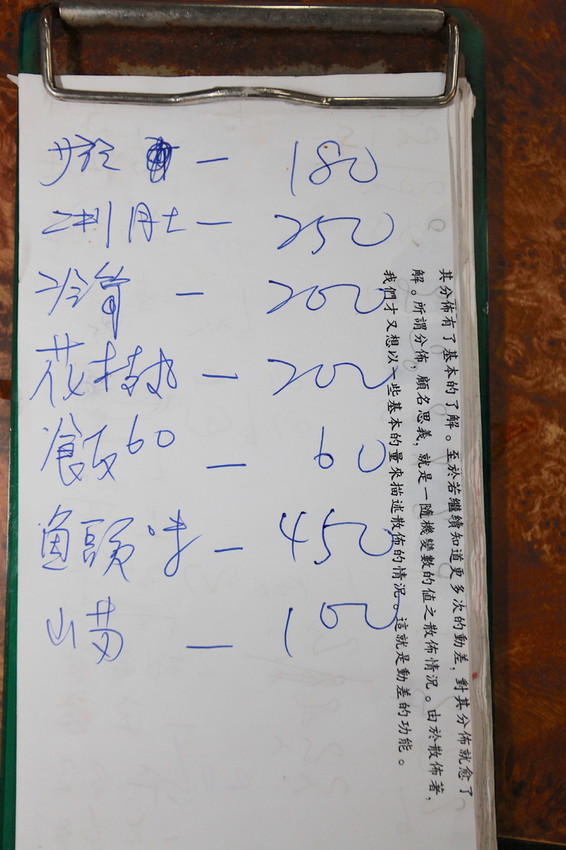 — 180
肚 — 250
冷笋 — 200
花枝 — 200
飯60 — 60
魚頭 — 450
山苏 — 100
其分佈有了基本的了解。至於若繼續知道更多次的動差，對其分佈就愈了
解。所謂分佈，顧名思義，就是一隨機變數的值之散佈情況。由於散佈著，
我們才又想以一些基本的量來描述散佈的情況。這就是動差的功能。